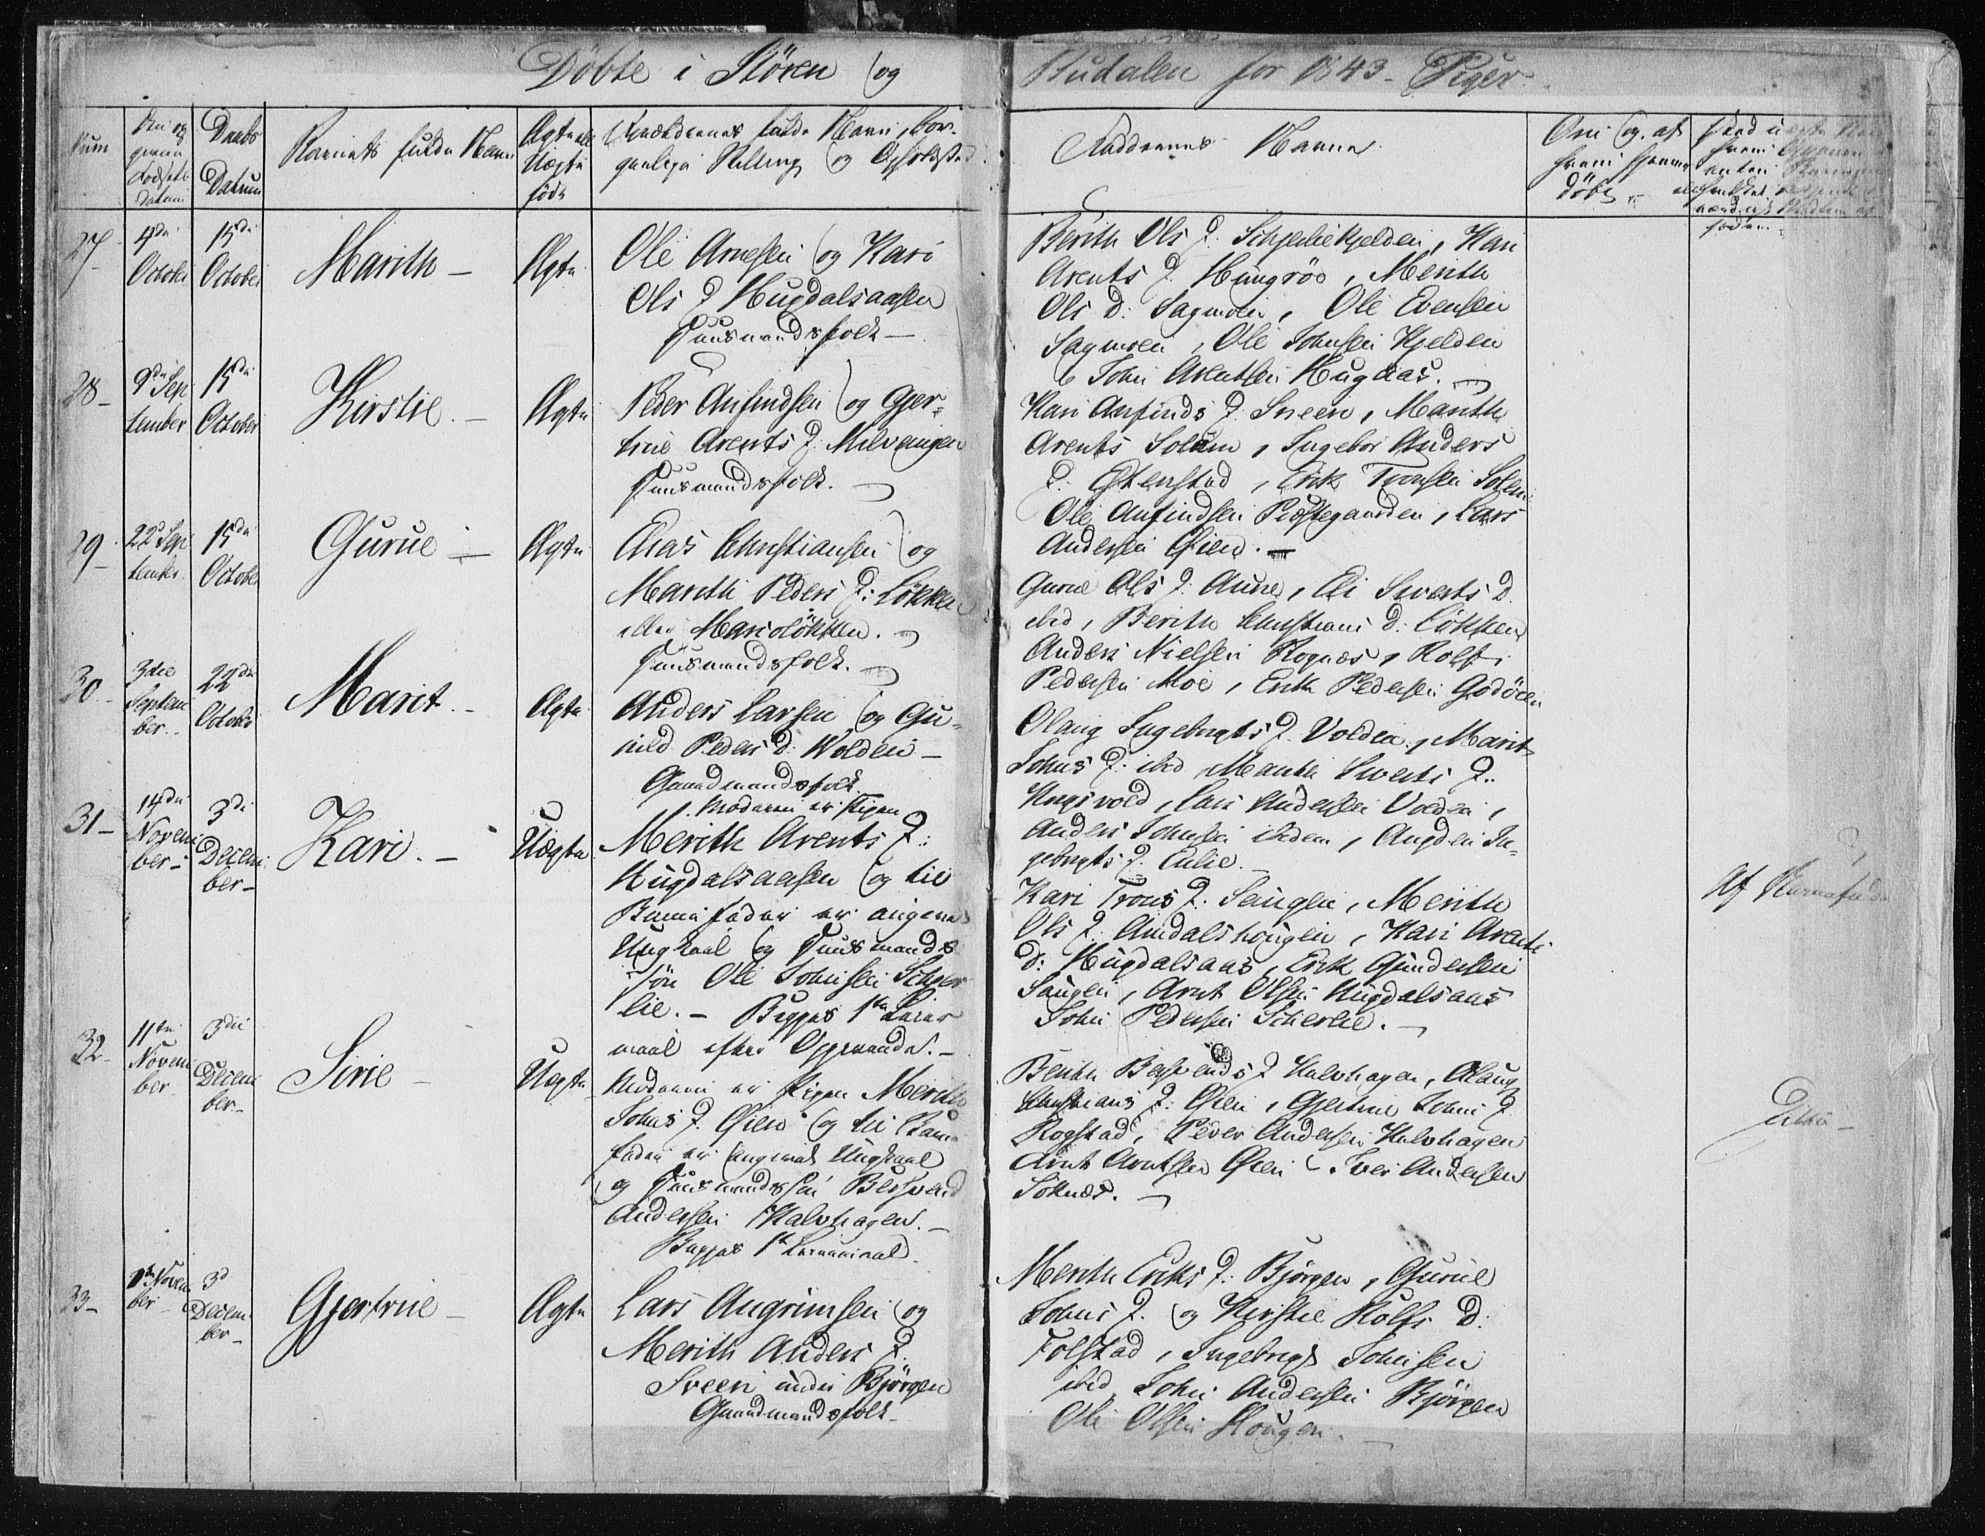 Döbte i Stören og Budalen for 1843. Piger.
Num
Daabs Datum
Barnets fulde Navn
Ægte eller Uægte föde
Forældrenes fulde Navn, borgerlige Stilling og Opholdsted
Faddernes Navne.
27
4de October
15de October
Marith
Ægte
Ole Arnesen og Kari
Ols D Hugdalsaasen
Huusmandsfolk
Berith Ols D: Schjerliekjelden, Kari
Arents D. Hungröe, Merith
Ols D: Sagmoen, Ole Evensen
Sagmoen, Ole Johnsen Kjelden
John Arentsen Hugaas.
28
9de September
15de October
Kirstie.
Ægte
Peder Anfindsen og Gjer-
true Arents D. Milvangen
Huusmandsfolk.
Kari Anfinds D: Sneen, Marith
Arents Solem, Ingebor Anders
D: Estenstad, Erik Tronsen Solem
Ole Anfindsen Præstegaarden, Lars
Andersen Öien.
29
22de September
15de October
Gurue
Ægte
Elias Christiansen og
Marith Peders D: Lökken
eller Marielökken.
Huusmandsfolk.
Gurue Ols D. Aune, Eli Siverts D.
ibid, Berith Christians D: Lökken
Anders Nielsen Rognæs, Rolf
Pedersen Moe, Erik Pedersen Godöen
30
3die September
22de October
Marit.
Ægte
Anders Larsen og Gu-
nild Peders D: Wolden
Gaardmandsfolk
Olaug Ingebrigts D. Volden, Marit
Johns D: ibid, Marith Siverts D.
Kngsvold, Lars Andersen Volden,
Anders Johnsen ibidem, Augden In-
gebrigts D. Enlie.
31
14de November
3de December
Kari.
Uægte
Moderen er Pigen
Merith Arents D:
Hugdalsaasen og til
Barnefader er angiven
Ungkaal og Huusmands
sön Ole Johnsen Schjer
lie. Begges 1ste Leier
maal efter Opgivende.
Kari Trons D: Haugen, Merith
Ols D. Amdalshougen, Kari Arents
D: Hugdalsaas, Erik Gundersen
Haugen, Arnt Olsen Hugdalsaas
John Pedersen Scherlie.
32
11te November
3die December
Sirie
Uægte
Moderen er Pigen Merith
Johns D. Öien og til Barne
fader er angivet Ungkaal
og Huusmandssön Bersvend
Andersen Halvhagen.
Begges 1ste Leiermaal.
Berith Bersvends D Halvhagen, Olaug
Christians D: Öien, Gjertrue Johns D
Rogstad, Peder Andersen Halvhagen
Arnt Arntsen Öien, Iver Andersen
Söknæs.
Ditto
33
November
3d December
Gjertrue
Ægte
Lars Angrimsen og
Merith Anders D.
Sveen under Björgen
Gaardmandsfolk
Merith Eriks D: Björgen, Gurue
Johns D. og Kirstie Rolfs D:
Folstad, Ingebrigt Johnsen
ibid, John Andersen Björgen
Ole Olsen Hougen.